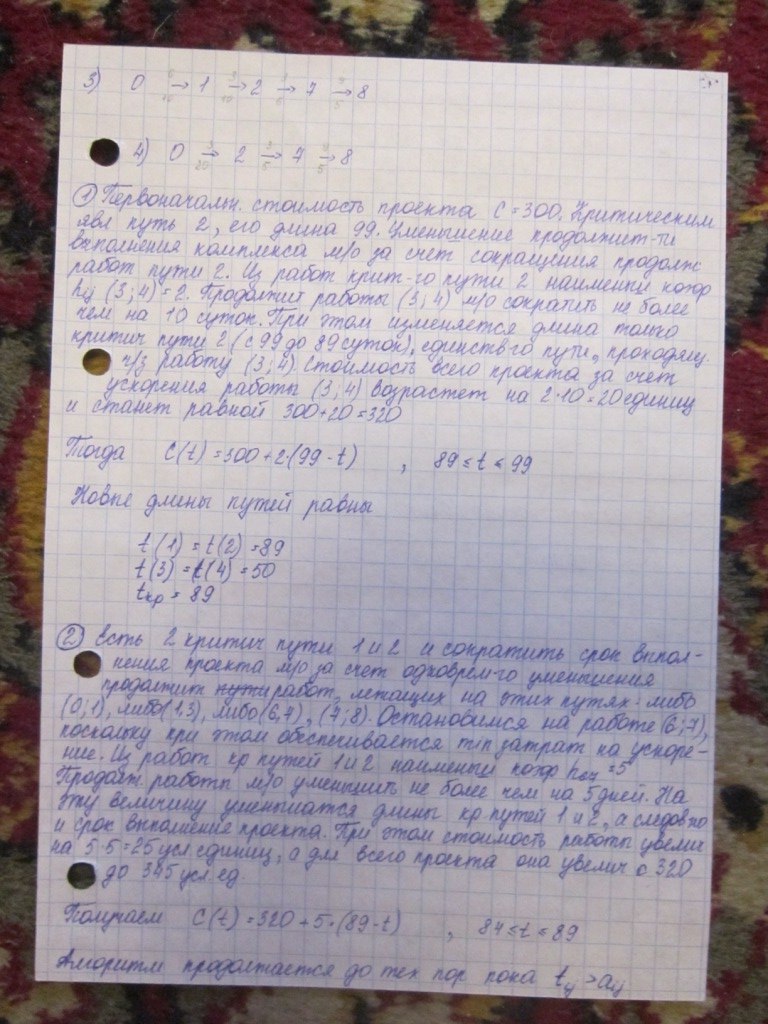 3) 0 → 1 → 2 → 7 → 8
4) 0 → 2 → 7 → 8
① Первоначальн. стоимость проекта C = 300. Критическим
явл путь 2, его длина 99. Уменьшение продолжит-ти
выполнения комплекса м/о за счет сокращения продолж
работ пути 2. Из работ крит-го пути 2 наименьш коэф
hij (3;4) = 2. Продолжит работы (3;4) м/о сократить не более
чем на 10 суток. При этом изменяется длина только
критич пути 2 (с 99 до 89 суток), единств-го пути, проходящ
ч/з работу (3;4). Стоимость всего проекта за счет
ускорения работы (3;4) возрастет на 2·10 = 20 единиц
и станет равной 300+20=320
Тогда C(t) = 300 + 2·(99 - t) , 89 ≤ t ≤ 99
Новые длины путей равны
t(1) = t(2) = 89
t(3) = t(4) = 50
tкр = 89
② Есть 2 критич пути 1 и 2 и сократить срок выпол-
нения проекта м/о за счет одноврем-го уменьшения
продолжит работ, лежащих на этих путях - либо
(0;1), либо (1,3), либо (6,7), (7;8). Остановимся на работе (6;7),
поскольку при этом обеспечивается min затрат на ускоре-
ние. Из работ кр путей 1 и 2 наименьш коэф h₆₇ = 5
Продолж. работы м/о уменьшить не более чем на 5 дней. На
эту величину уменьшатся длины кр путей 1 и 2, а следов-но
и срок выполнения проекта. При этом стоимость работы увелич
на 5·5=25 усл единиц, а для всего проекта она увелич с 320
до 345 усл. ед.
Получаем C(t) = 320 + 5·(89 - t) , 84 ≤ t ≤ 89
Алгоритм продолжается до тех пор пока tij > aij